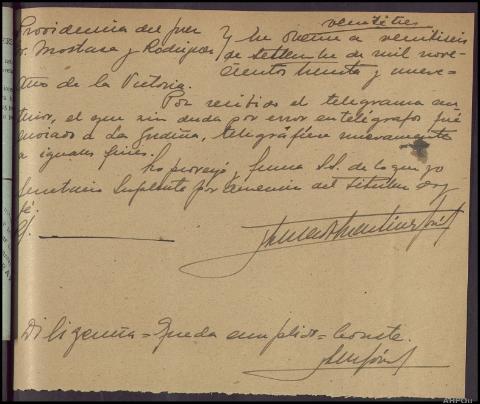 Providencia del Juez
Sr. Mostaza y Rodríguez
Y
veintitres
de Settembre de mil nove-
cientos treinta y nueve-
Año de la Victoria.
Por recibido el telegrama an-
terior, el que sin duda por error en telégrafos fué
enviado a La Gudiña, telegrafíese nuevamente
a iguales fines.
Lo proveyó y firma SS. de lo que yo
Secretario Suplente por
del titular doy
fé.
Diligencia = Queda cumplido = Conste.
AHPOu